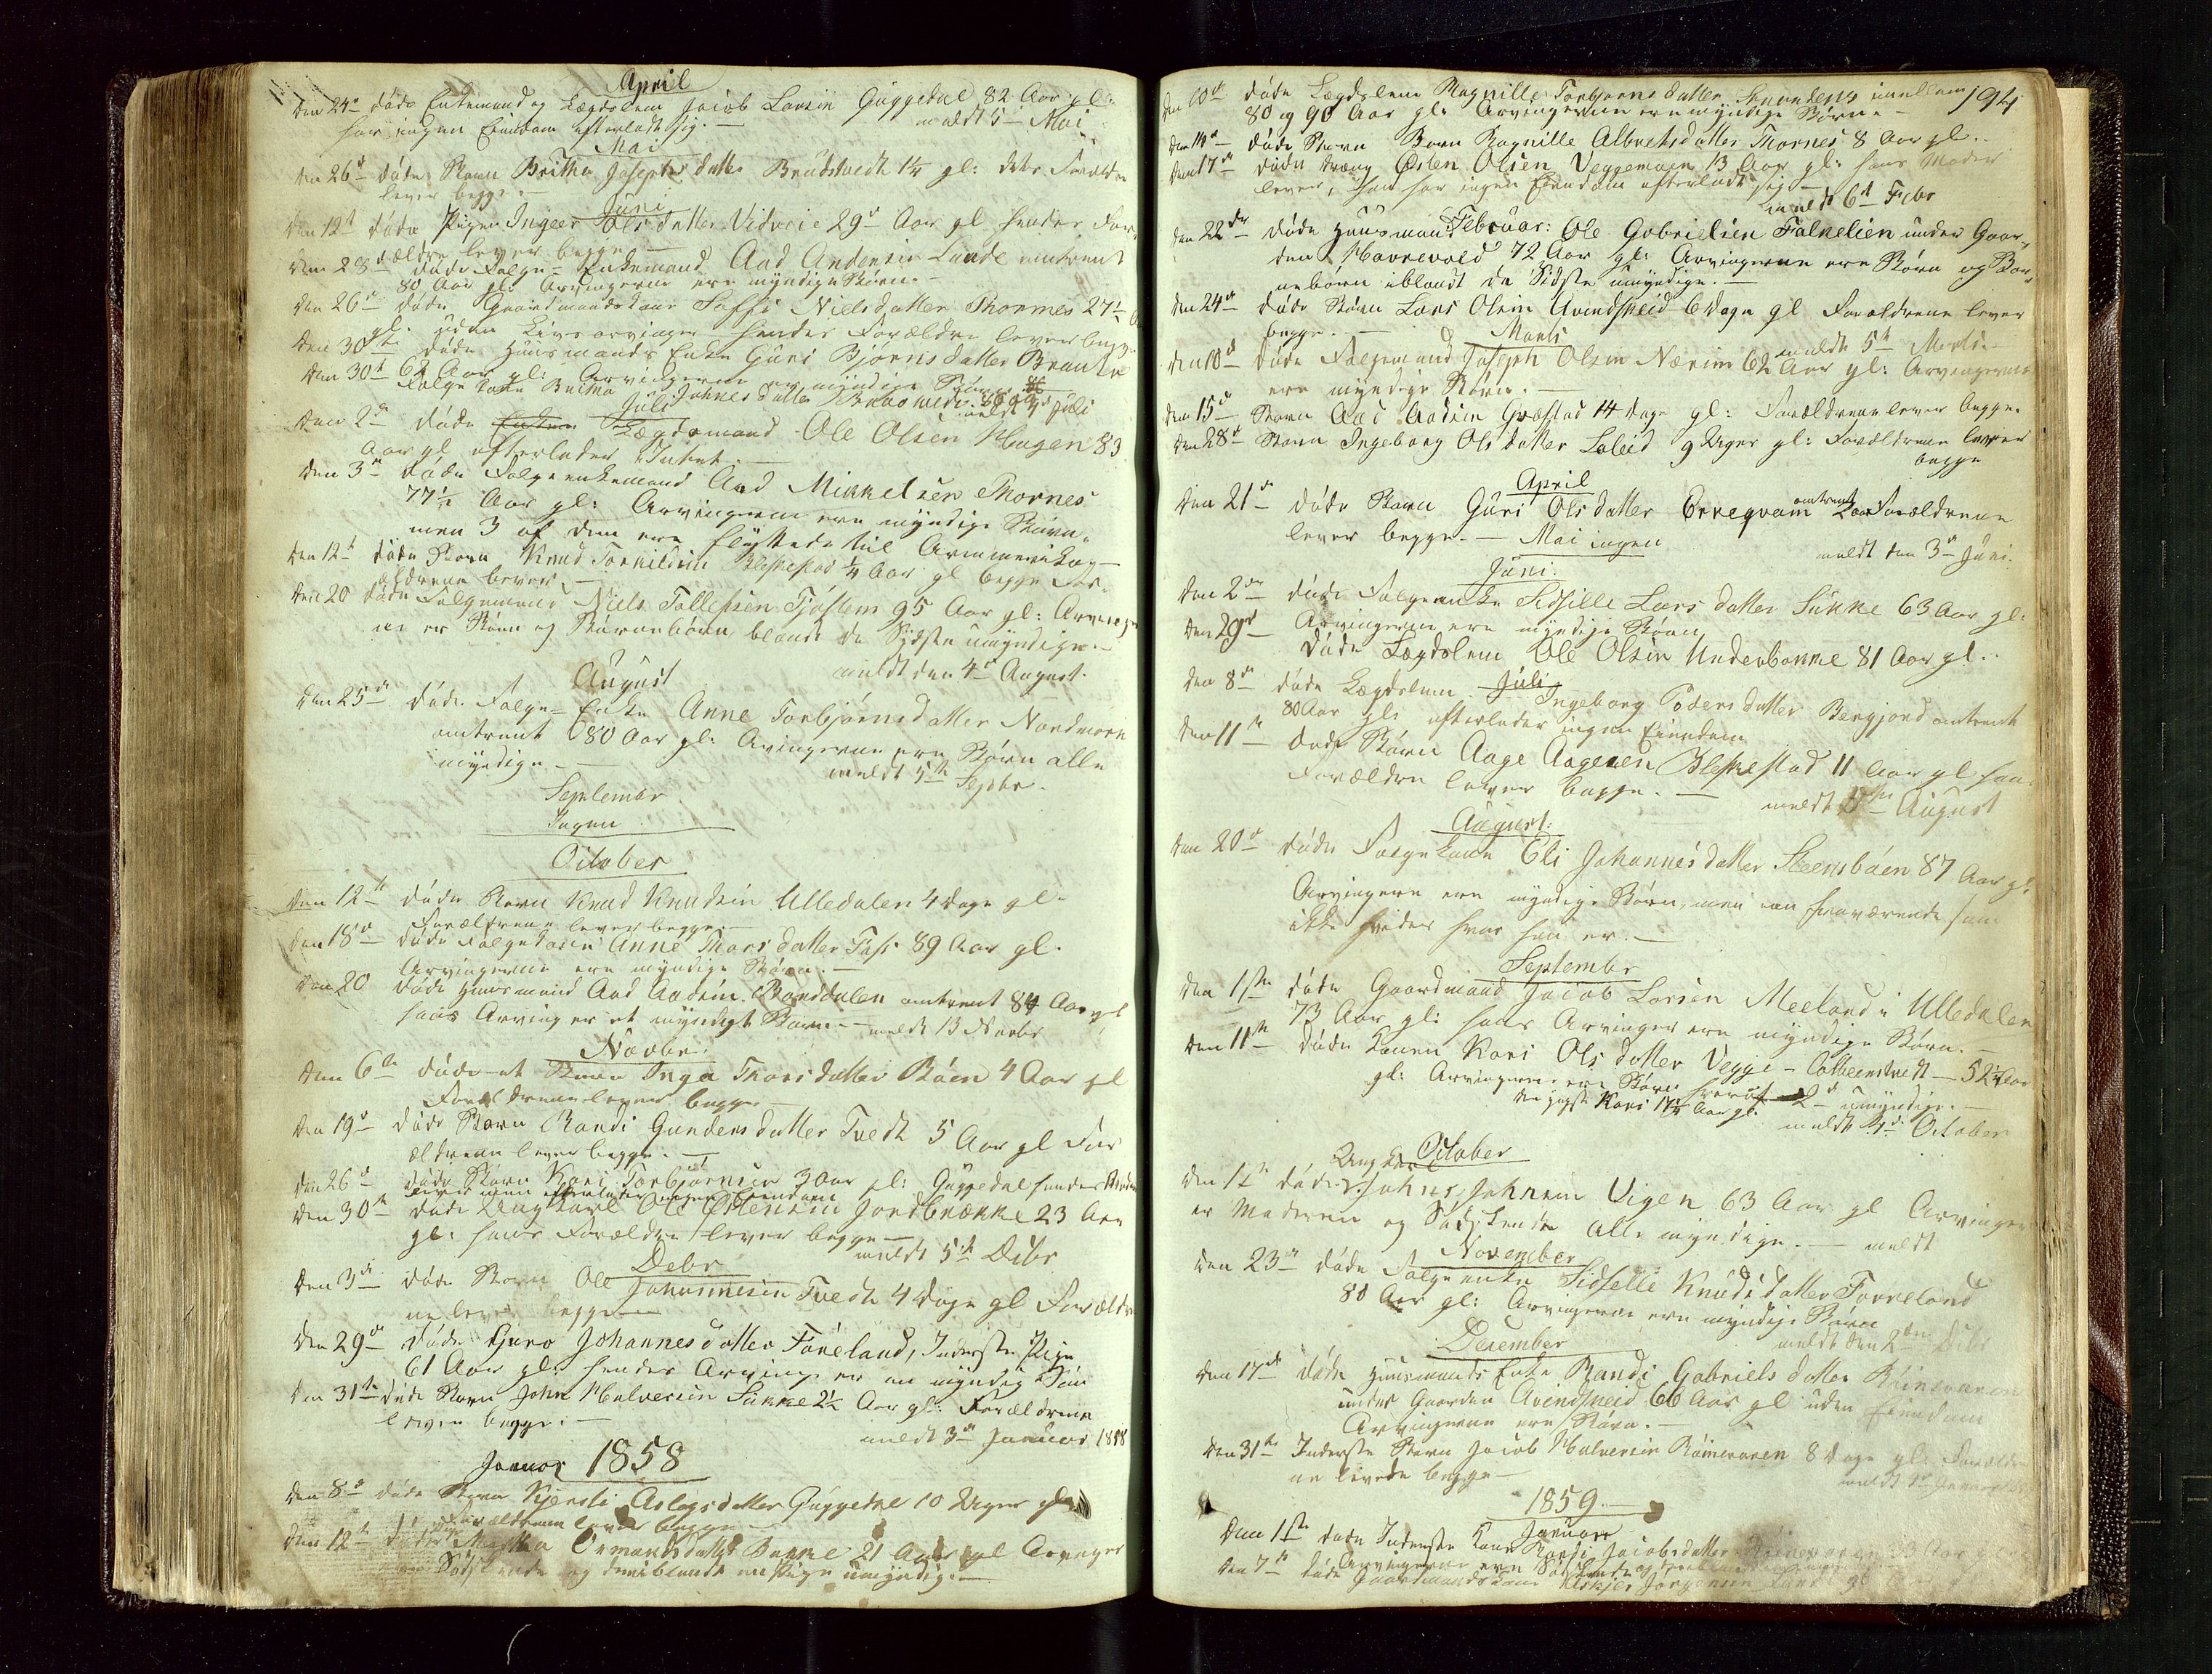 April
Den 24de døde Enkemand og Lægdslem Jacob Larsen Guggedal 82 Aar gl.
har ingen Eiendom efterladt sig. — meldt 5te Mai
Mai
Den 26de døde Barn Britha Josephsdatter Brudstvedt 1¼ gl: dets Forældre
lever begge. —
Juni
Den 12te døde Pigen Ingeer Olsdatter Vidveie 29de Aar gl hendes For-
ældre lever begge. —
Den 28de døde Følge-Enkemand Aad Andersen Lunde omtrent
80 Aar gl. Arvingerne ere myndige Børn. —
Den 26de døde Gaardmandskone Siffi Nielsdatter Thornes 27½
gl. uden Livsarvinger hendes Forældre lever begge
Den 30te døde Huusmands Enke Guri Bjørnsdatter
Aar gl: Arvingerne ere myndige Børn
Den 30te Følge kone Britha Johnesdatter
Juli
meldt Juli
Den 2de døde Lægdsmand Ole Olsen Hagen 83
Aar gl efterlader Intet. —
Den 3de døde Følgeenkemand Aad Mikkelsen Thornes
77½ Aar gl: Arvingerne ere myndige Børn,
men 3 af dem ere flyttede til Amerika —
Den 12te døde Barn Knud Torkildsen Bleskestad ¼ Aar gl begge For-
ældrene lever. —
Den 20 døde Følgemand Niels Tollefsen Tjøstem 95 Aar gl: Arvinger
ne er Børn og Børnebørn, blandt de Sidste umyndige. —
meldt den 4de August.
August
Den 25de døde Følge-Enke Anne Torbjørnsdatter Nordmork
omtrent 80 Aar gl. Arvingerne ere Børn alle
myndige. —
meldt 5te Sepbr.
September
Ingen
October
Den 12te døde Barn Knud Knudsen Ulledalen 4 Dage gl.
Forældrene lever begge —
Den 18de døde Følgekone Anne Thorsdatter 89 Aar gl.
Arvingerne ere myndige Børn. —
Den 20 døde Huusmand Aad Aadsen Bonsdalen omtrent 84 Aar gl
hans Arving er et myndigt Barn. — meldt 13 Novbr
Novbr.
Den 6te døde et Barn Inga Thorsdatter Bøen 4 Aar gl
Forældrene lever begge —
Den 19de døde Barn Randi Gundersdatter Tvedt 5 Aar gl For
ældrene lever begge. —
Den 26de døde Barn Kari Torbjørnsen 3 Aar gl: Guggedal hendes Moder
lever men efterlader ingen Eiendom
Den 30te døde Ungkarl Ole Østensen Jordbrække 23 Aar
gl: hans Forældre lever begge —
meldt 5te Debr
Debr
Den 3de døde Barn Ole Johannesen Tvedt 4 Dage gl Forældre
ne lever begge —
Den 29de døde Guro Johannesdatter Føreland, Inderste Pige
61 Aar gl: hendes Arving er en myndig Søn
Den 31te døde Barn John Halvorsen Sukke 2½ Aar gl: Forældrene
lever begge. —
meldt 3de Januar 1858
Januar 1858
Den 8de døde Barn Kjersti Aslagsdatter Guggedal 10 Uger gl
Forældrene lever begge —
Den 12te døde Martha Ormundsdatter Bakke 21 Aar gl Arvinger
Sødskende og deriblandt umyndig. —
194
Den 10de døde Lægdslem Ragnille Torbjørnsdatter imellem
80 og 90 Aar gl: Arvingerne ere myndige Børn. —
Den 14de døde Barn Ragnille Albretsdatter Thornes 8 Aar gl. —
Den 17de døde Dreng Østen Olsen Veggemoen 13 Aar gl: hans Moder
lever, han har ingen Eiendom efterladt sig —
meldt 6te Febr
Februar:
Den 22de døde Huusmand Ole Gabrielsen Falnelien under Gaar-
den Havrevold 72 Aar gl: Arvingerne ere Børn og Bør-
nebørn iblandt de Sidste umyndige. —
Den 24de døde Barn Lars Olsen Qvindsheid 6 Dage gl Forældrene lever
begge. —
meldt 5te Marts. —
Marts
Den 10de døde Følgemand Joseph Olsen Nærim 62 Aar gl: Arvingerne
ere myndige Børn. —
Den 15de Barn Aad Aadsen Græstad 14 Dage gl: Forældrene lever begge.
Den 28de Barn Ingeborg Olsdatter Loleid 9 Uger gl: Forældrene lever
begge
April
Den 21de døde Barn Guri Olsdatter Ørreqvam omtrent 2 Aar Forældrene
lever begge. — Mai ingen
meldt den 3de Juni.
Juni.
Den 2den døde Følgeenke Sidsille Larsdatter Sukke 63 Aar gl.
Arvingerne ere myndige Børn
Den 29de døde Lægdslem Ole Olsen Underbakke 81 Aar gl. .
Juli
Den 8de døde Lægdslem Ingeborg Pedersdatter Bergjord omtrent
80 Aar gl: efterlader ingen Eiendom
Den 11te døde Barn Aage Aagesen Bleskestad 11 Aar gl hans
Forældre lever begge. —
meldt August
August:
Den 20de døde Følgekone Eli Johannesdatter Steensbøen 87 Aar gl.
Arvingerne ere myndige Børn, men een fraværende som
ikke vides hvor han er. —
Septembr
Den 1ste døde Gaardmand Jacob Larsen Meeland i Ulledalen
73 Aar gl: hans Arvinger ere myndige Børn. —
Den 11te døde Konen Kari Olsdatter Vegge — 52½ Aar
gl: Arvingerne ere Børn hvoraf umyndige. —
den yngste Kari 17½ Aar gl:
meldt October
October
Den 1ste døde Ungkarl Johns Johnsen Vigen 63 Aar gl Arvinger
er Moderen og Sødskende alle myndige. — meldt
November
Den 23de døde Følgeenke Sidselle Knudsdatter Førreland
80 Aar gl: Arvingerne ere myndige Børn
meldt den 2den Debr
Desember
Den 17de døde Huusmands Enke Randi Gabrielsdatter
under Gaarden Qvindsheid 66 Aar gl uden Eiendom
Arvingerne ere Børn. —
Den 31te Inderste Barn Jacob Halvorsen 8 Dage gl. Forældre
ne levede begge —
1859. —
Januar
Den 1ste døde Inderste Kone Jacobsdatter
Arvingerne ere Sødskende
Den 7de døde Gaardmandskone